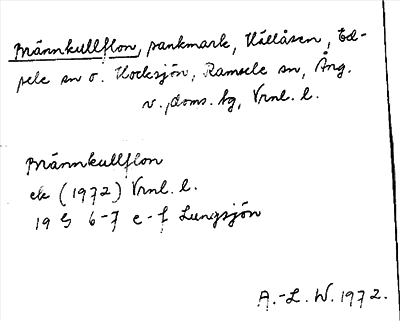 Brännkullflon, sankmark, Hällåsen, Ed-
sele sn o. Hocksjön, Ramsele sn, Ång.
v. doms. hg, Vrnl. l.
Brännkullflon
ek (1972) Vrnl. l.
19 G 6-7 e-f Lungsjön
A.-L. W. 1972.